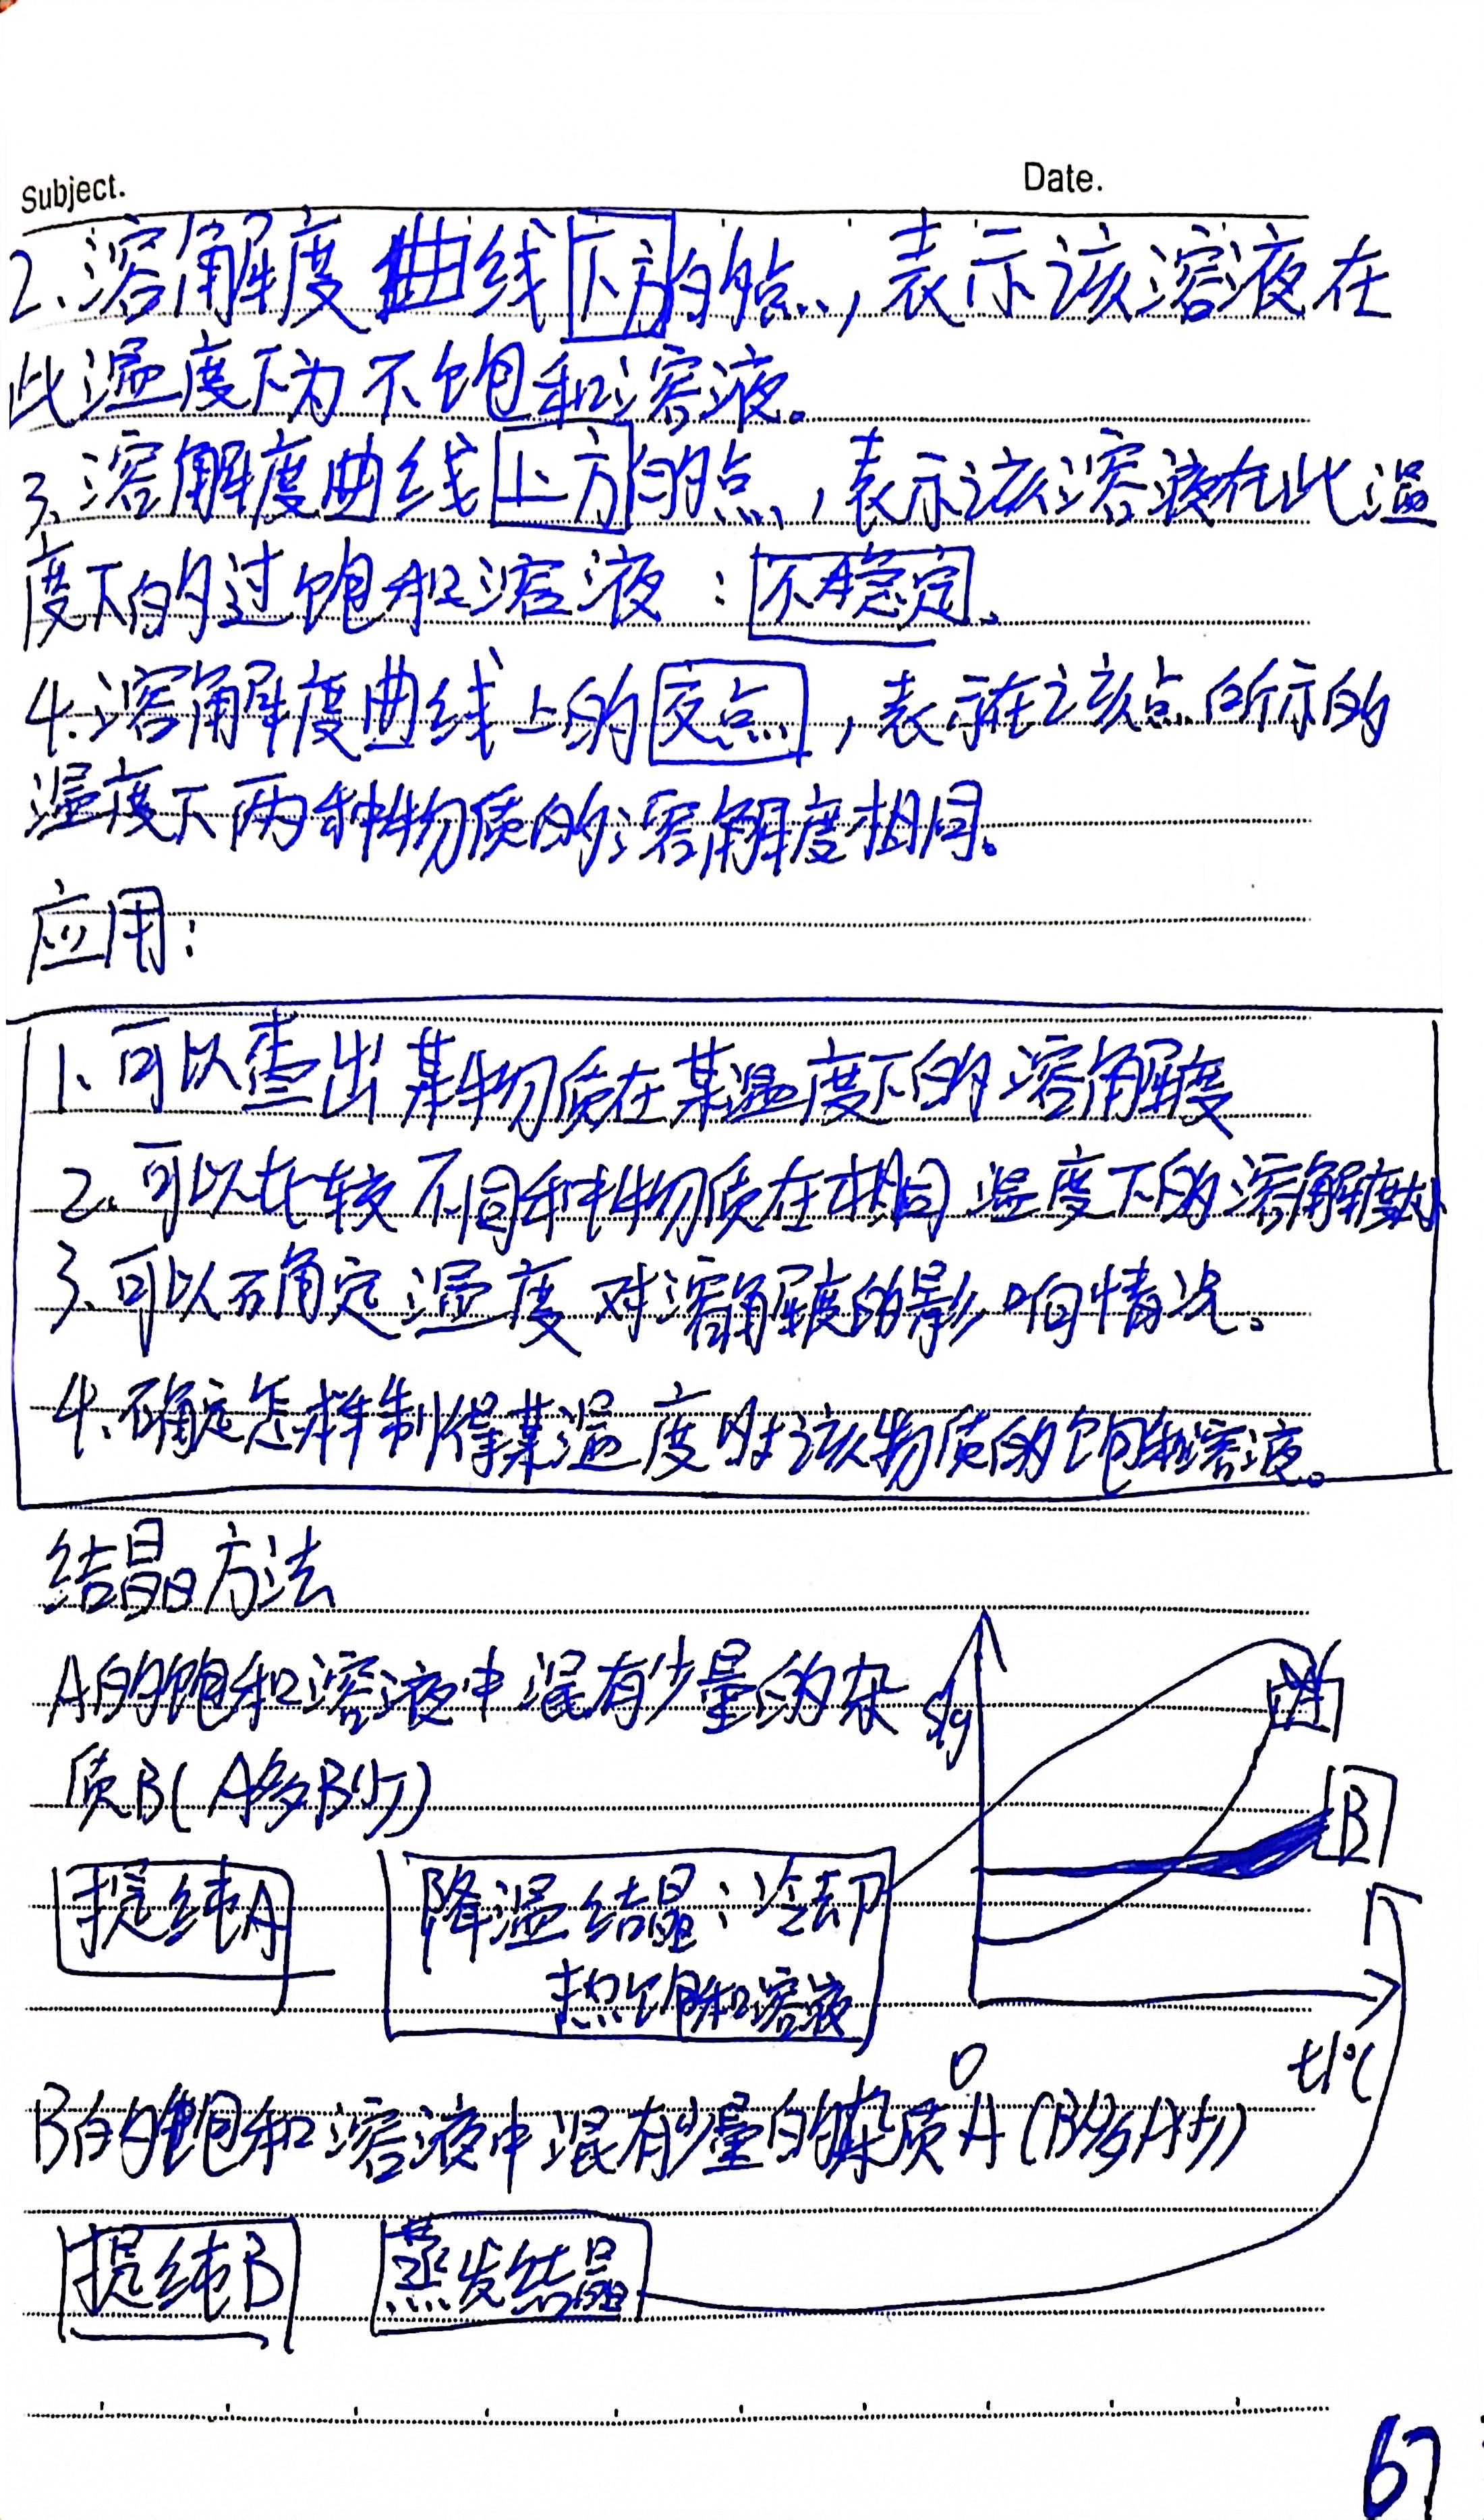 Subject.
Date.
2、溶解度曲线下方的点,表示该溶液在
此温度下为不饱和溶液。
3、溶解度曲线上方的点,表示该溶液在此温
度下的过饱和溶液:不稳定、
4、溶解度曲线上的交点,表示在该点所示的
温度下两种物质的溶解度相同。
应用:
1、可以查出某物质在某温度下的溶解度
2、可以比较不同种物质在相同温度下的溶解度大小
3、可以确定温度对溶解度的影响情况。
4、确定怎样制得某温度时该物质的饱和溶液。
结晶方法
A的饱和溶液中混有少量的杂
质B(A多B少)
S/g
B
提纯A
降温结晶:冷却
热饱和溶液
0
t/℃
B的饱和溶液中混有少量的杂质A(B多A少)
提纯B
蒸发结晶
67